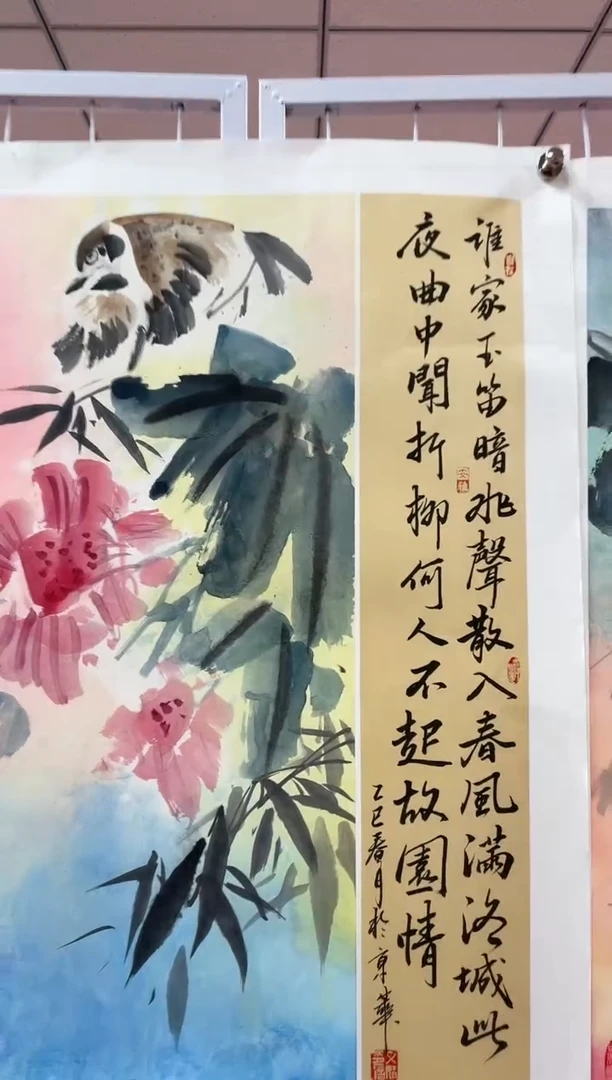 誰家玉笛暗飛聲散入春風滿洛城此
夜曲中聞折柳何人不起故園情
乙巳春月於京華